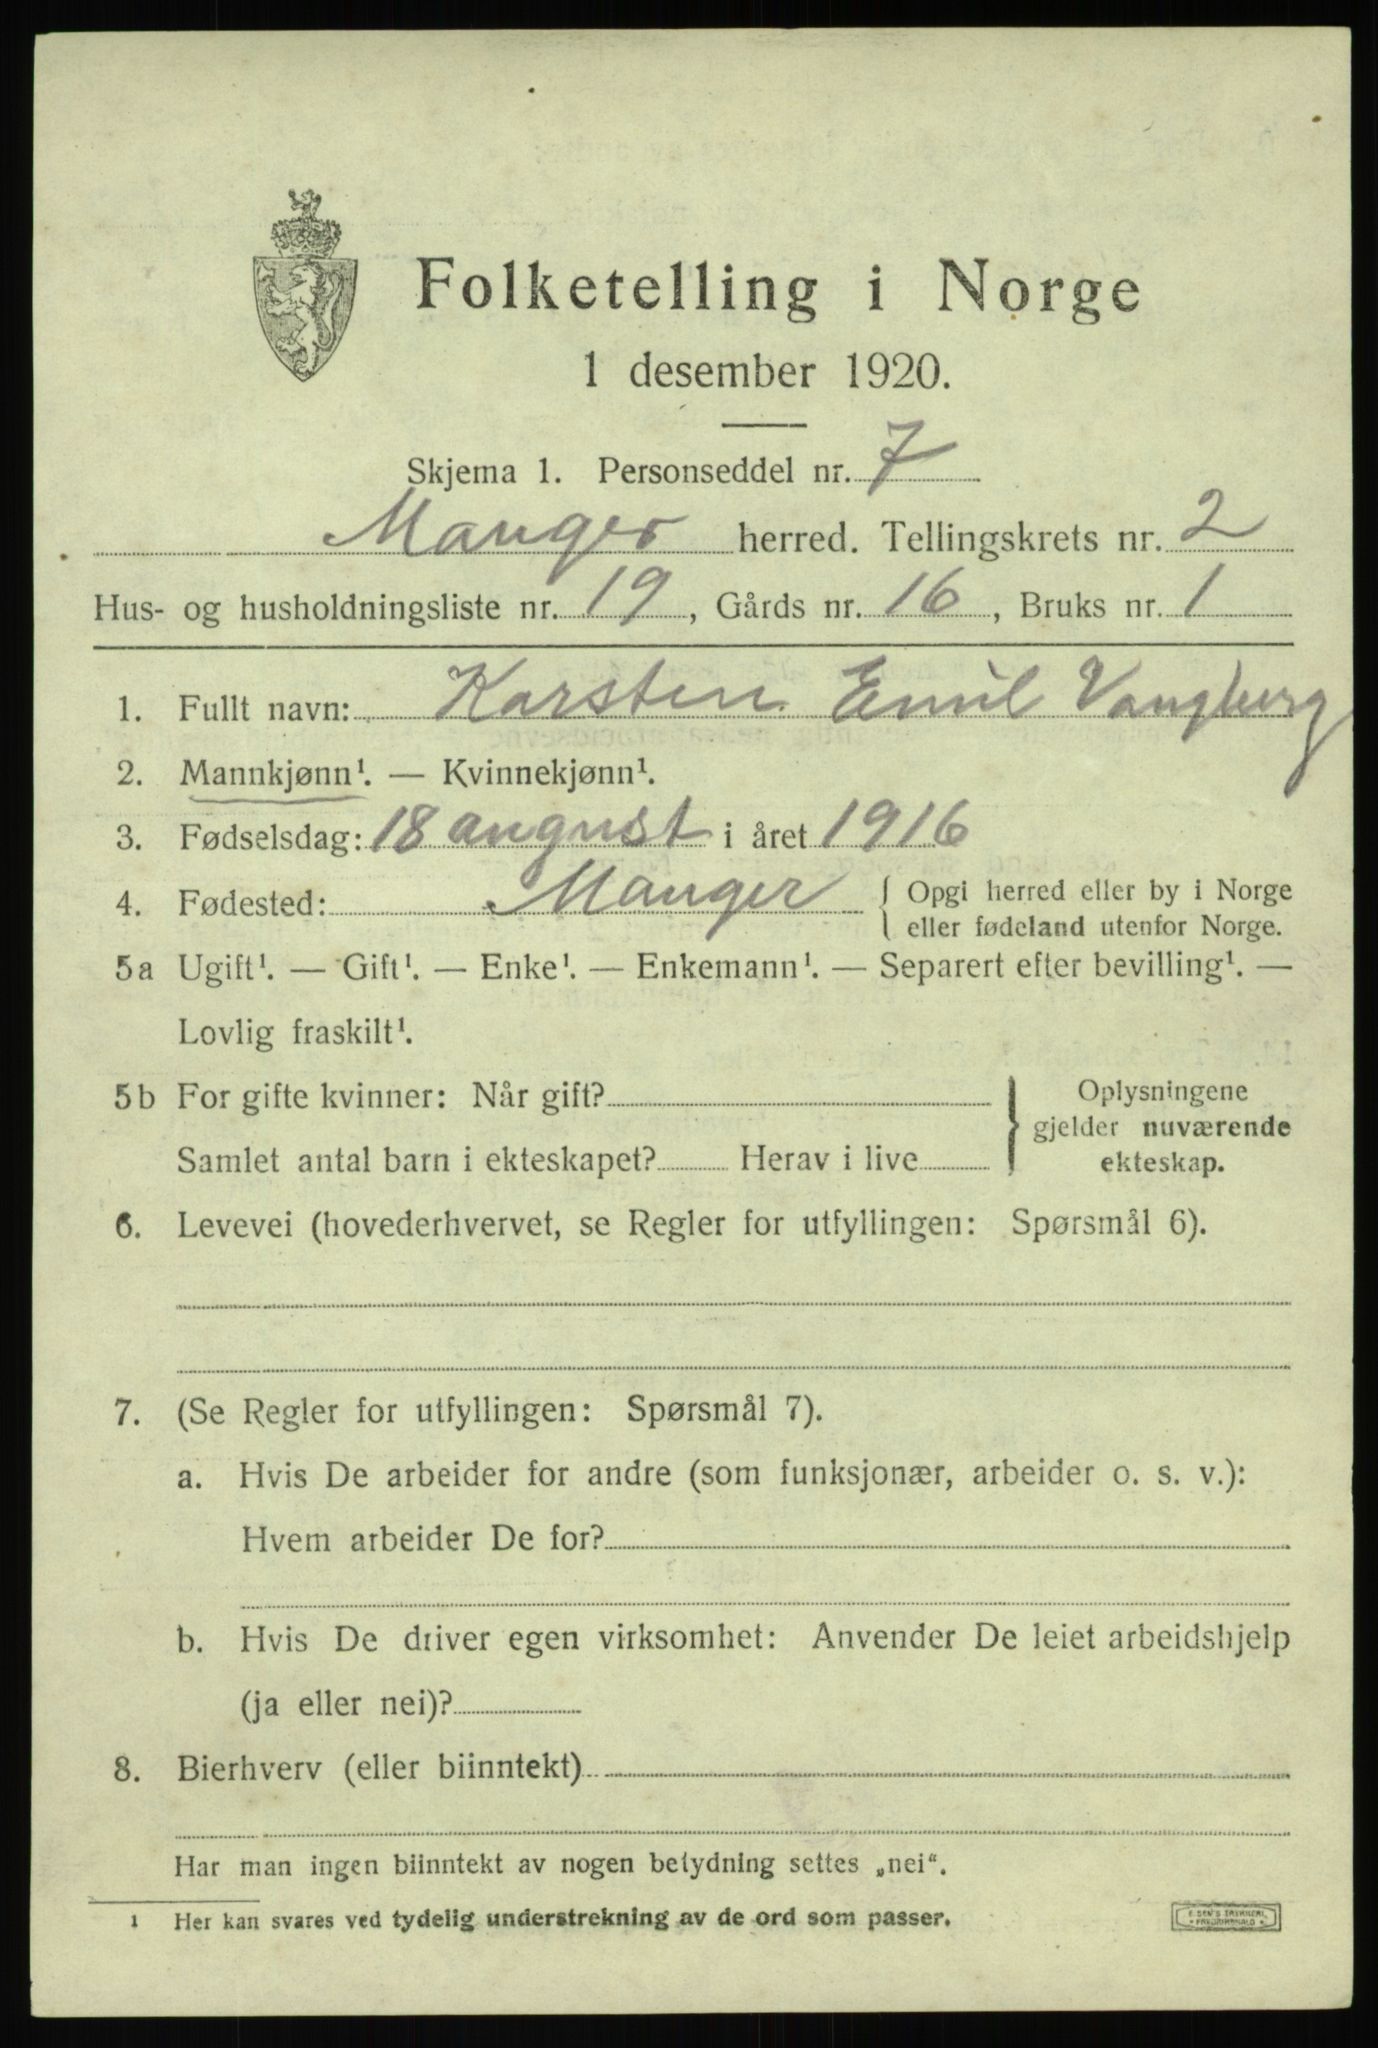 Folketelling i Norge
1 desember 1920.
Skjema 1. Personseddel nr. 7
Manger herred. Tellingskrets nr. 2
Hus- og husholdningsliste nr. 19, Gårds nr. 16, Bruks nr. 1
1. Fullt navn: Karsten Emil Vangberg
2. Mannkjønn¹. — Kvinnekjønn¹.
3. Fødselsdag: 18 august i året 1916
4. Fødested: Manger { Opgi herred eller by i Norge
eller fødeland utenfor Norge.
5a Ugift¹. — Gift¹. — Enke¹. — Enkemann¹. — Separert efter bevilling¹. —
Lovlig fraskilt¹.
5b For gifte kvinner: Når gift? } Oplysningene
gjelder nuværende
Samlet antal barn i ekteskapet? Herav i live ekteskap.
6. Levevei (hovederhvervet, se Regler for utfyllingen: Spørsmål 6).
7. (Se Regler for utfyllingen: Spørsmål 7).
a. Hvis De arbeider for andre (som funksjonær, arbeider o. s. v.):
Hvem arbeider De for?
b. Hvis De driver egen virksomhet: Anvender De leiet arbeidshjelp
(ja eller nei)?
8. Bierhverv (eller biinntekt)
Har man ingen biinntekt av nogen betydning settes „nei“.
1 Her kan svares ved tydelig understrekning av de ord som passer.